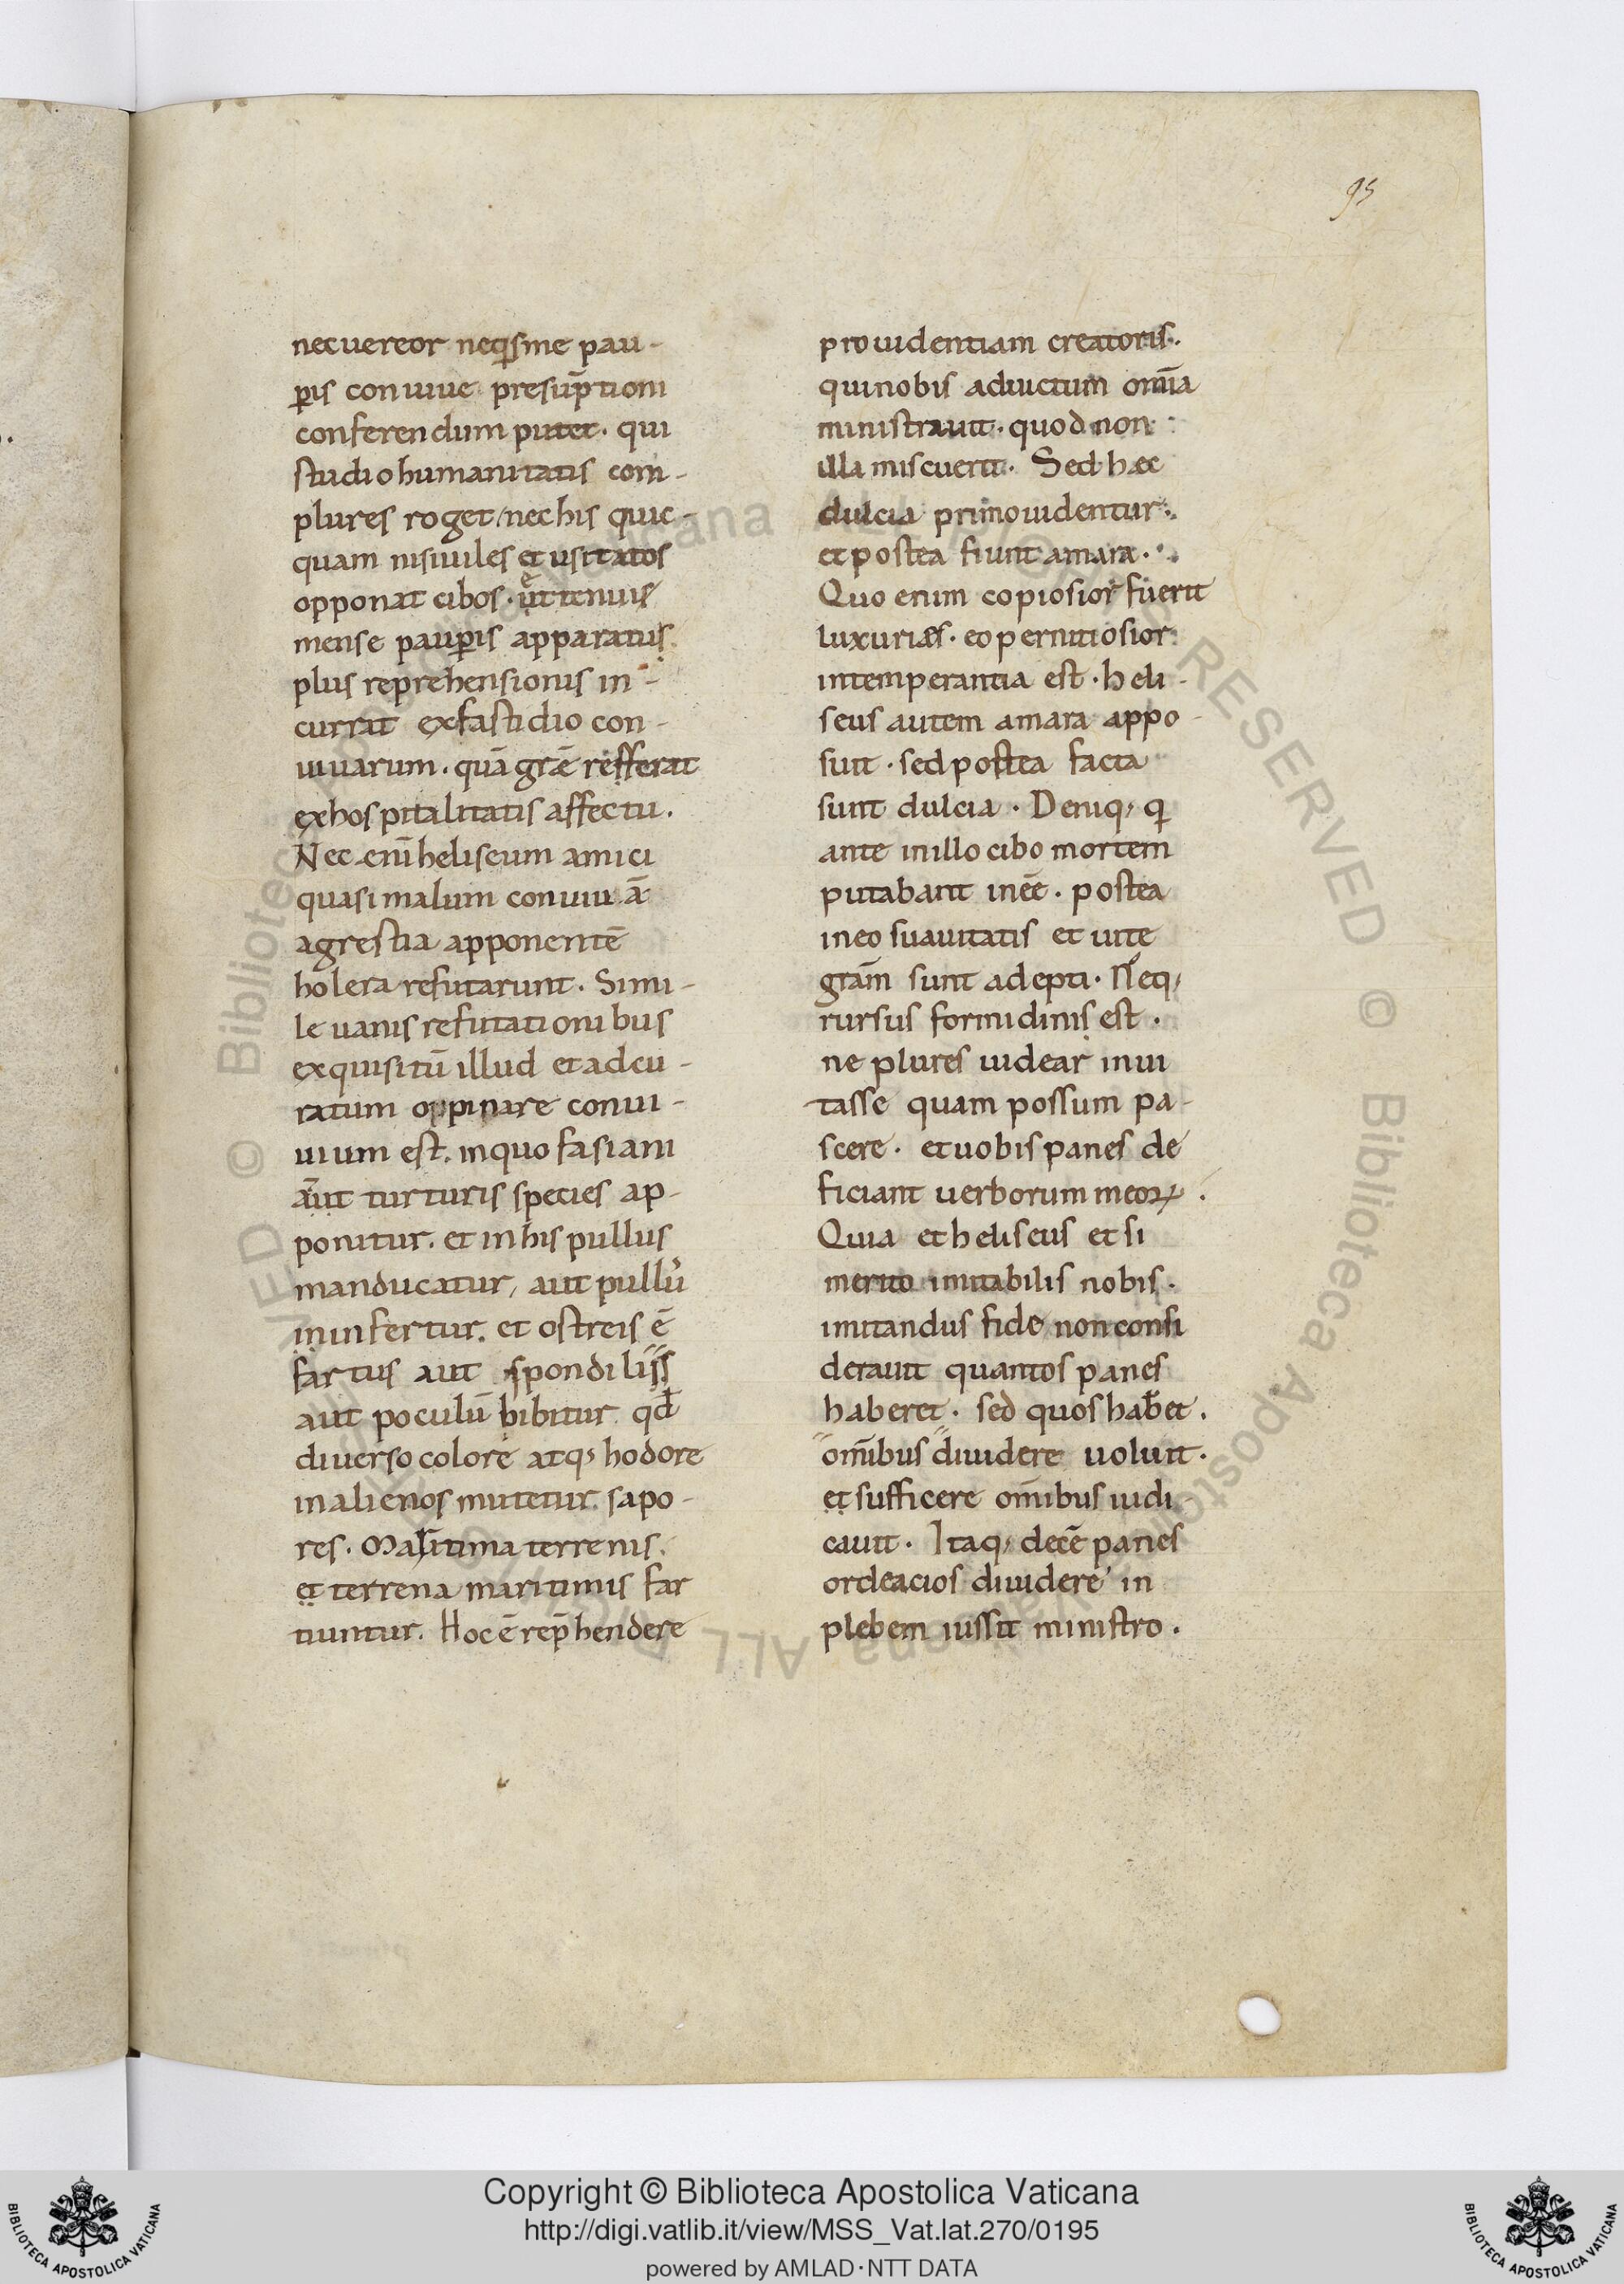 95
nec uereor neq͛s me pau-
ꝑis conuiue presūptioni
conferendum putet. qui
studio humanitatis com-
plures roget, nec his quic-
quam nisi uiles et usitatos
opponat cibos. ut tenuis
mense pauꝑis apparatus
plus reprehensionis in-
currat ex fastidio con-
uiuarum. quā grǣ refferat
ex hospitalitatis affectu.
Nec enī heliseum amici
quasi malum conuiuā
agrestia apponentē
holera refutarunt. Simi-
le uanis refutationibus
exquisitū illud et adcu-
ratum oppinare conui-
uium est. in quo fasiani
aut turturis species ap-
ponitur. et in his pullus
manducatur, aut pullū
ininfertur. et ostreis ē
fartus aut spondiliis
aut poculū bibitur qđ
diuerso colore atq; hodore
in alienos mutetur sapo-
res. Maritima terrenis.
et terrena maritimis far
tiuntur. Hoc ē rep̄hendere
prouidentiam creatoris.
qui nobis ad uictum omīa
ministrauit. quod non
illa miscuerit. Sed hæc
dulcia primo uidentur.
et postea fiunt amara.
Quo enim copiosior fuerit
luxuries. eo pernitiosior
intemperantia est. heli-
seus autem amara appo-
suit. sed postea facta
sunt dulcia. Deniq; q
ante in illo cibo mortem
putabant inēē. postea
in eo suauitatis et uite
grām sunt adepti. Neq;
rursus formidinis est.
ne plures uidear inui
tasse quam possum pa-
scere. et uobis panes de
ficiant uerborum meoꝝ.
Quia et heliseus et si
merito imitabilis nobis.
imitandus fide non consi
derauit quantos panes
haberet. sed quos habet.
omībus diuidere uoluit.
et sufficere omībus iudi-
cauit. Itaq; decē panes
ordeacios diuidere in
plebem iussit ministro.
Copyright © Biblioteca Apostolica Vaticana
http://digi.vatlib.it/view/MSS_Vat.lat.270/0195
powered by AMLAD·NTT DATA
BIBLIOTECA APOSTOLICA VATICANA
BIBLIOTECA APOSTOLICA VATICANA